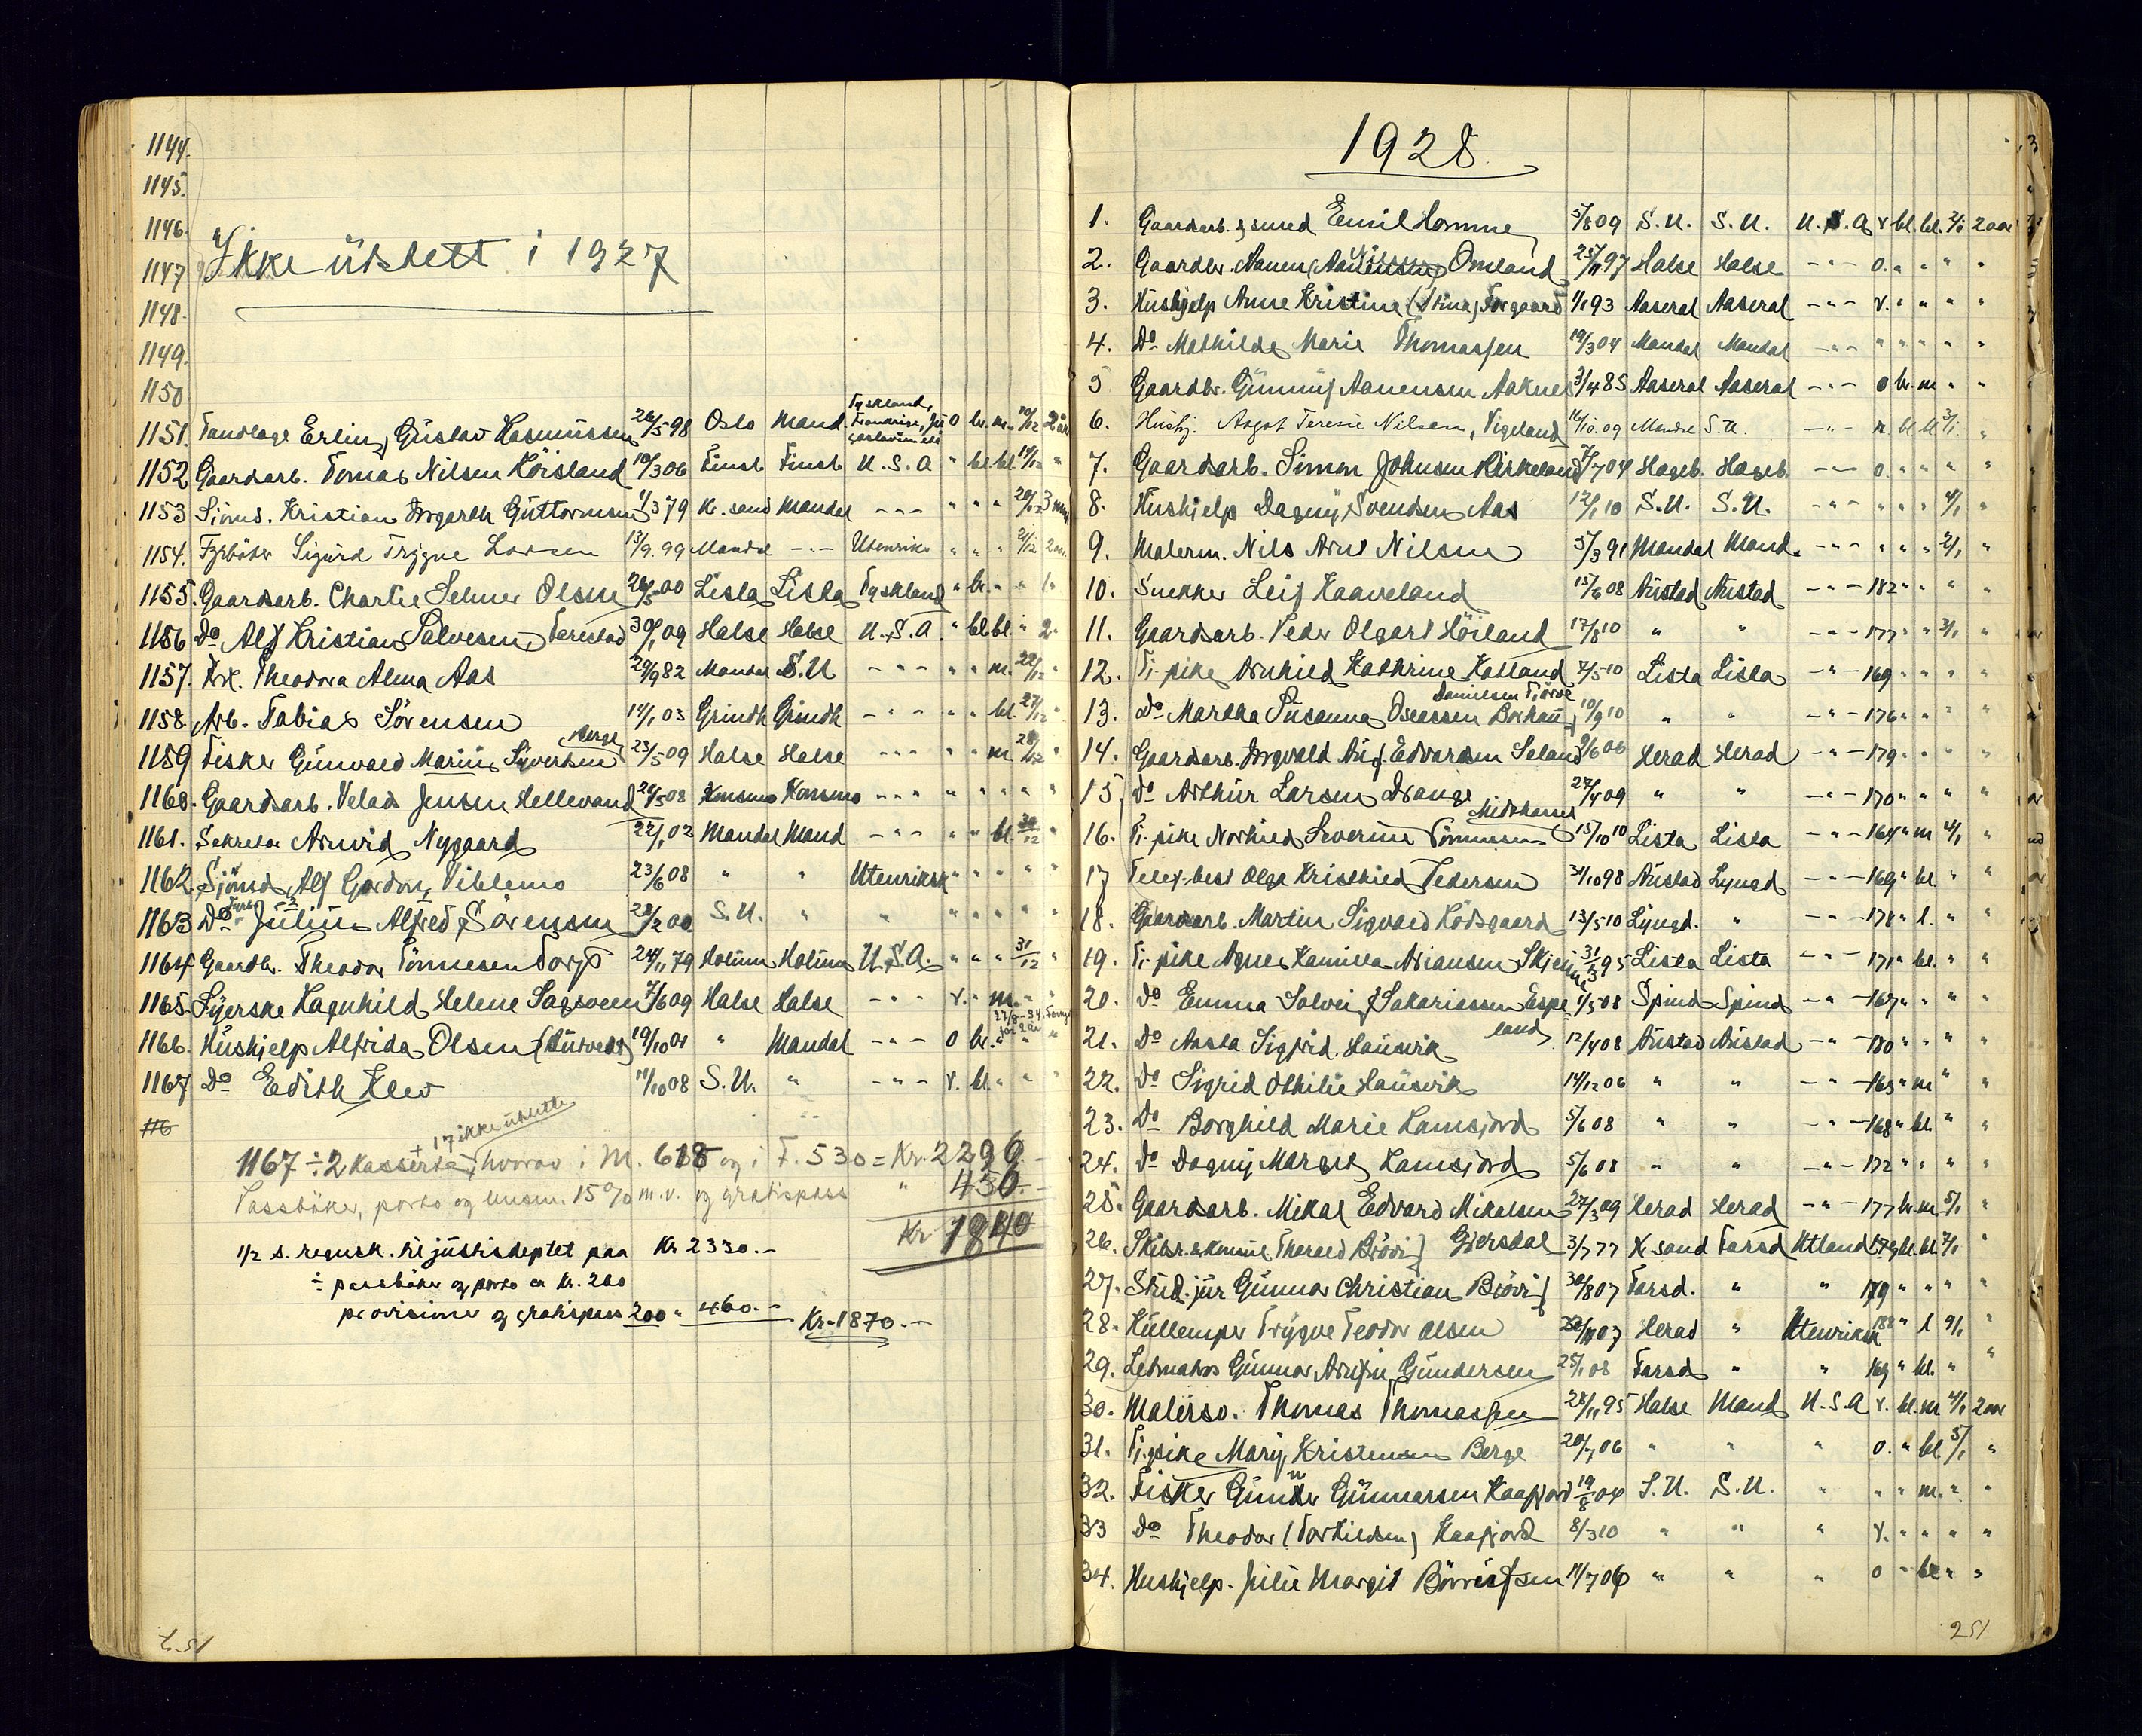 1144.
1145.
1146.
1147
1148.
1149.
1150
Ikke utstett i 1927
1151. Tandlæge Erling Gustav Rasmussen 26/5 98 Oslo Mand Tyskland, Frankrige, O br. m. 10/12 2 år
1152 Gaardsarb. Tomas Nilsen Höisland 10/3 06 Finsl. Finsl. U.S.A " bl. bl. 19/12 "
1153 Sjömd. Kristian Guttormsen 1/3 79 Kr.sand Mandal - " - " " " 20/12 3 mnd
1154. Fyrböter Sigurd Trygve Larsen 13/9. 99 Mandal - " - Utenriks " " " 21/12 2 aar
1155. Gaardsarb. Charlie Selmer Olsen 26/5 00 Lista Lista Tyskland " br. " " 1 "
1156 Do Alf Kristian Salvesen, Tarestad 30/1 09 Halse Halse U.S.A " bl. bl. " 2 "
1157. Frk. Theodora Alma Aas 29/9 82 Mandal S.U - " - " " m. 22/12 "
1158. Arb. Tobias Sörensen 14/1 03 Grindh Grindh - " - " " bl. 27/12 "
1159 Fisker Gunvald Marius Syvertsen Berge 23/5 09 Halse Halse - " - " " m 28/12 "
1160. Gaardsarb. Velas Jensen Hellevand 20/5 08 Konsmo Konsmo - " - " " " " "
1161. Sekretær Arnvid Nygaard 22/1 02 Mandal Mand - " - " " bl. 30/12 "
1162 Sjömd. Alf Gordon Viblemo 23/6 08 " " Utenriksk " " " " "
1163 Do Julius Alfred Sörensen 28/2 00 S.U. " " " " " " "
1164. Gaardbr. Theodor Tönnesen Torp 24/11 79 Holum Holum U.S.A. " " " 31/12 "
1165. Syerske Ragnhild Helene Sagsveen 7/6 09 Halse Halse - " - r. " m. " "
1166. Hushjelp Alfrida Olsen 19/10 01 " Mandal - " - O br. " " "
1167 Do Edith Klev 11/10 08 S.U. " - " - r. bl. " " "
116
+ 17 ikke utstette
1167 ÷ 2 kasserte, hvorav i M. 618 og i F. 530 = Kr. 2296.-
Passböker, porto og 15% m.v. og gratispass " 456.-
Kr. 1840
1/2 s. regnsk. til justisdeptet paa Kr 2330.-
÷ passböker og porto ca Kr. 260
provisioner og gratispass 200 " 460.- Kr. 1870.-
251
1928
1. Gaardarb. & smed Emil Homme 5/8 09 S.U. S.U. U.S.A r bl. bl. 2/1 2 aar
2. Gaardbr. Aanen Omland 25/11 97 Halse Halse - " - O. " " " "
3. Hushjelp Anne Kristine (Stina) Torgaard 1/1 93 Aaseral Aaseral - " - r. " " " "
4. Do Mathilde Marie Thomassen 19/3 04 Mandal Mandal - " - " " " " "
5 Gaardbr. Gunnuf Aanensen Aaknes 3/4 85 Aaseral Aaseral - " - O br. m " "
6. Hushj. Aagot Teresie Nilsen, Vigeland 16/10. 09 Mandal S.U. - " - r bl bl 3/1. "
7. Gaardsarb. Simon Johnsen Kirkeland 7/7 04 Hægeb. Hægeb. - " - O. " " " "
8. Hushjelp Dagny Svendsen Aas 12/1 10 S.U. S.U. - " - " " " 4/1 "
9. Malerm. Nils Arnt Nilsen 5/3 91 Mandal Mand. - " - " " " 2/1 "
10. Snekker Leif Haaveland 15/6 08 Austad Austad - " - 182 " " " "
11. Gaardsarb. Peder Olgart Höiland 17/8 10 " " - " - 177 " " 3/1 "
12. Tj. pike Arnhild Kathrine Hatland 7/5 10 Lista Lista - " - 169 " " " "
13. Do Martha Susanna Oseassen Borhaug Danielsen Tjörve 10/9 10 " " - " - 176 " " " "
14. Gaardsarb. Torgvald Edvardsen Seland 9/6 06 Herad Herad - " - 179 " " " "
15. Do Arthur Larsen Drange 27/4 09 " " - " - 170 " " " "
16. Tj. pike Norhild Severine Tönnesen Midthassel 15/10 10 Lista Lista - " - 164 " m 4/1 "
17 Telef. best Olga Kristhild Pedersen 31/10 98 Austad Lyngd - " - 169 " bl. " "
18. Gaardsarb. Martin Sigvald Rödsgaard 13/5 10 Lyngd. " - " - 178 " l. " "
19. Tj. pike Agnes Kamilla Ariansen 31/3 95 Lista Lista - " - 171 " bl. " "
20. Do Emma Solveig Sakariassen Espeland 1/5 08 Spind Spind - " - 167 " " " "
21. Do Aasta Sigfrid Hausvik 12/4 08 Austad Austad - " - 180 " " " "
22. Do Sigrid Othilie Hausvik 14/12 06 " " - " - 163 " m " "
23. Do Borghild Marie Ramsfjord 5/6 08 " " - " - 168 " bl. " "
24. Do Dagny Margit Ramsfjord 5/6 08 " " - " - 172 " " " "
25. Gaardsarb. Mikal Edvard Mikalsen 27/3 09 Herad Herad - " - 177 br. m. 5/1 "
26. Skibsr. & konsul Tharald Brövig Gjersdal 3/7 77 Kr.sand Farsd Utland 179 bl. bl. 7/1 "
27. Stud. jur Gunnar Christian Brövig 30/8 07 Farsd. " " 179 " " " "
28. Kullemper Trygve Teodor Olsen 07 Herad " Utenriksk 188 " l 9/1 "
29. Letmatros Gunnar Arnfin Gundersen 25/1 08 Farsd " " 169 " bl. " "
30. Malersv. Thomas Thomassen 28/11 95 Halse Mand U.S.A r. bl. m 4/1 2 aar
31. Tj. pike Mary Kristensen Berge 20/7 06 " " " O. " bl. 5/1 "
32. Fisker Gunder Gunnarsen Kaafjord 19/8 04 S.U. S.U. " " " m. " "
33 Do Theodor (Torkildsen) Kaafjord 8/3 10 " " " r. " " " "
34. Hushjelp. Julie Margit Börresen 11/7 06 " " " O " bl. " "
251